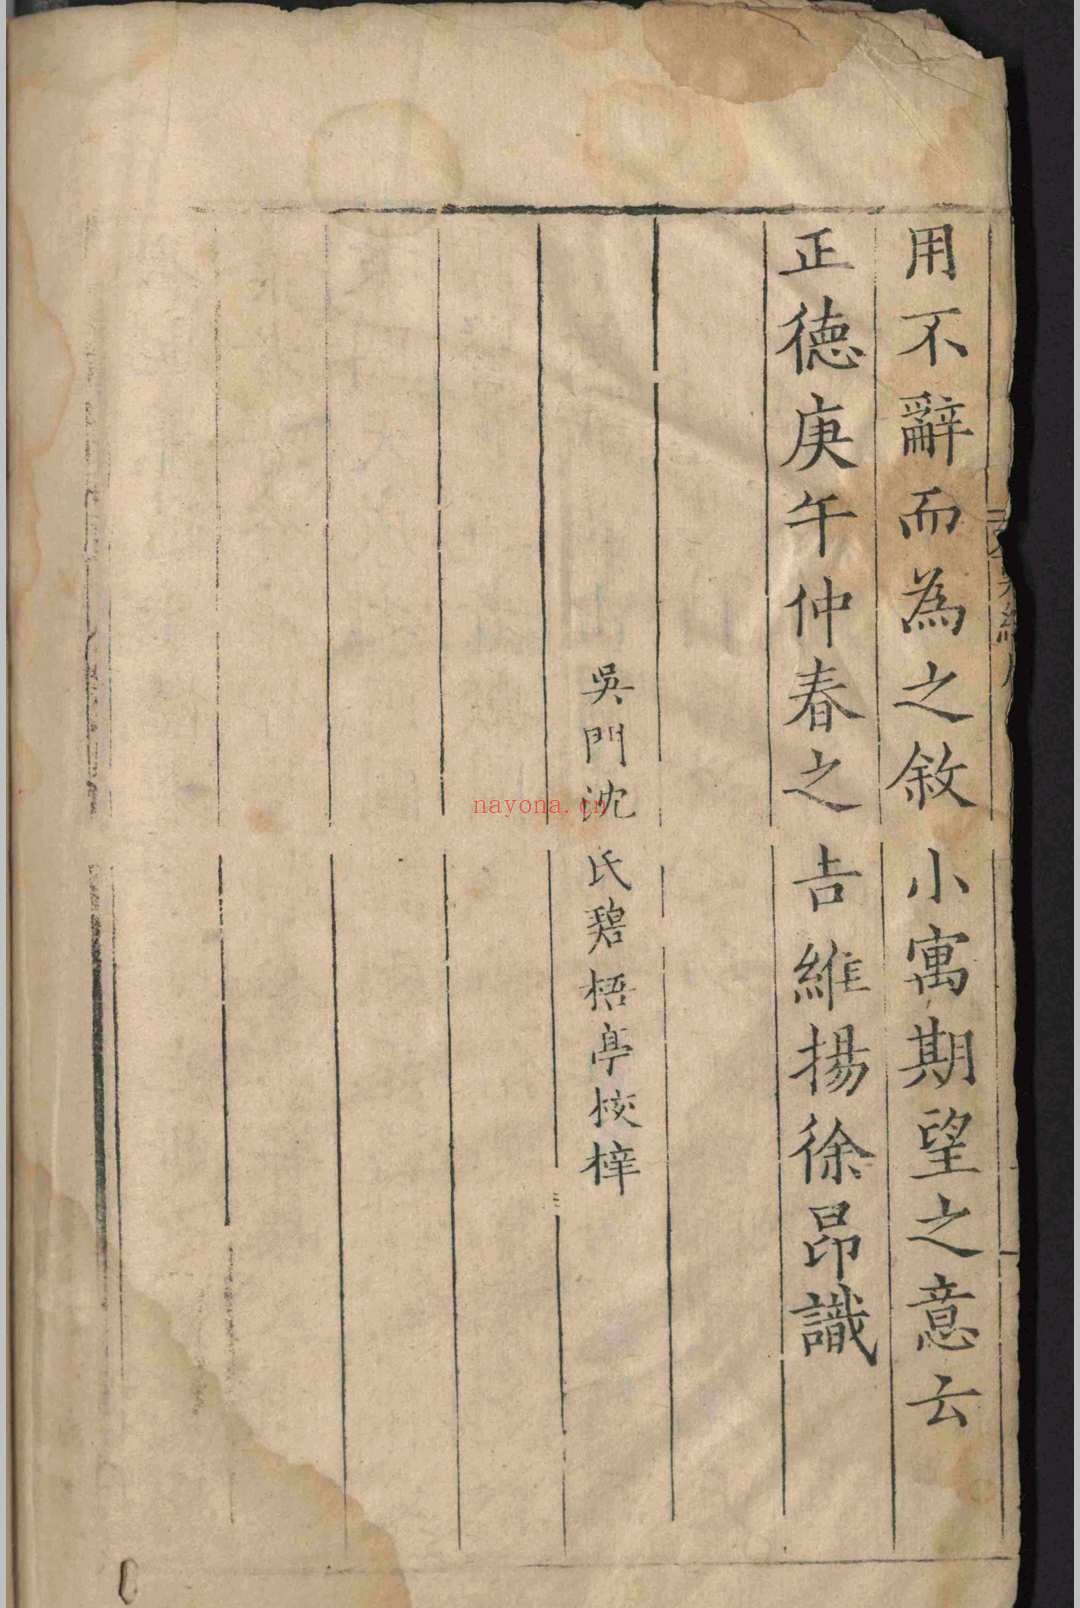 用不辭而為之敘小寓期望之意云
正德庚午仲春之吉維揚徐昂識
吳門沈氏碧梧亭校梓
nayona.cn